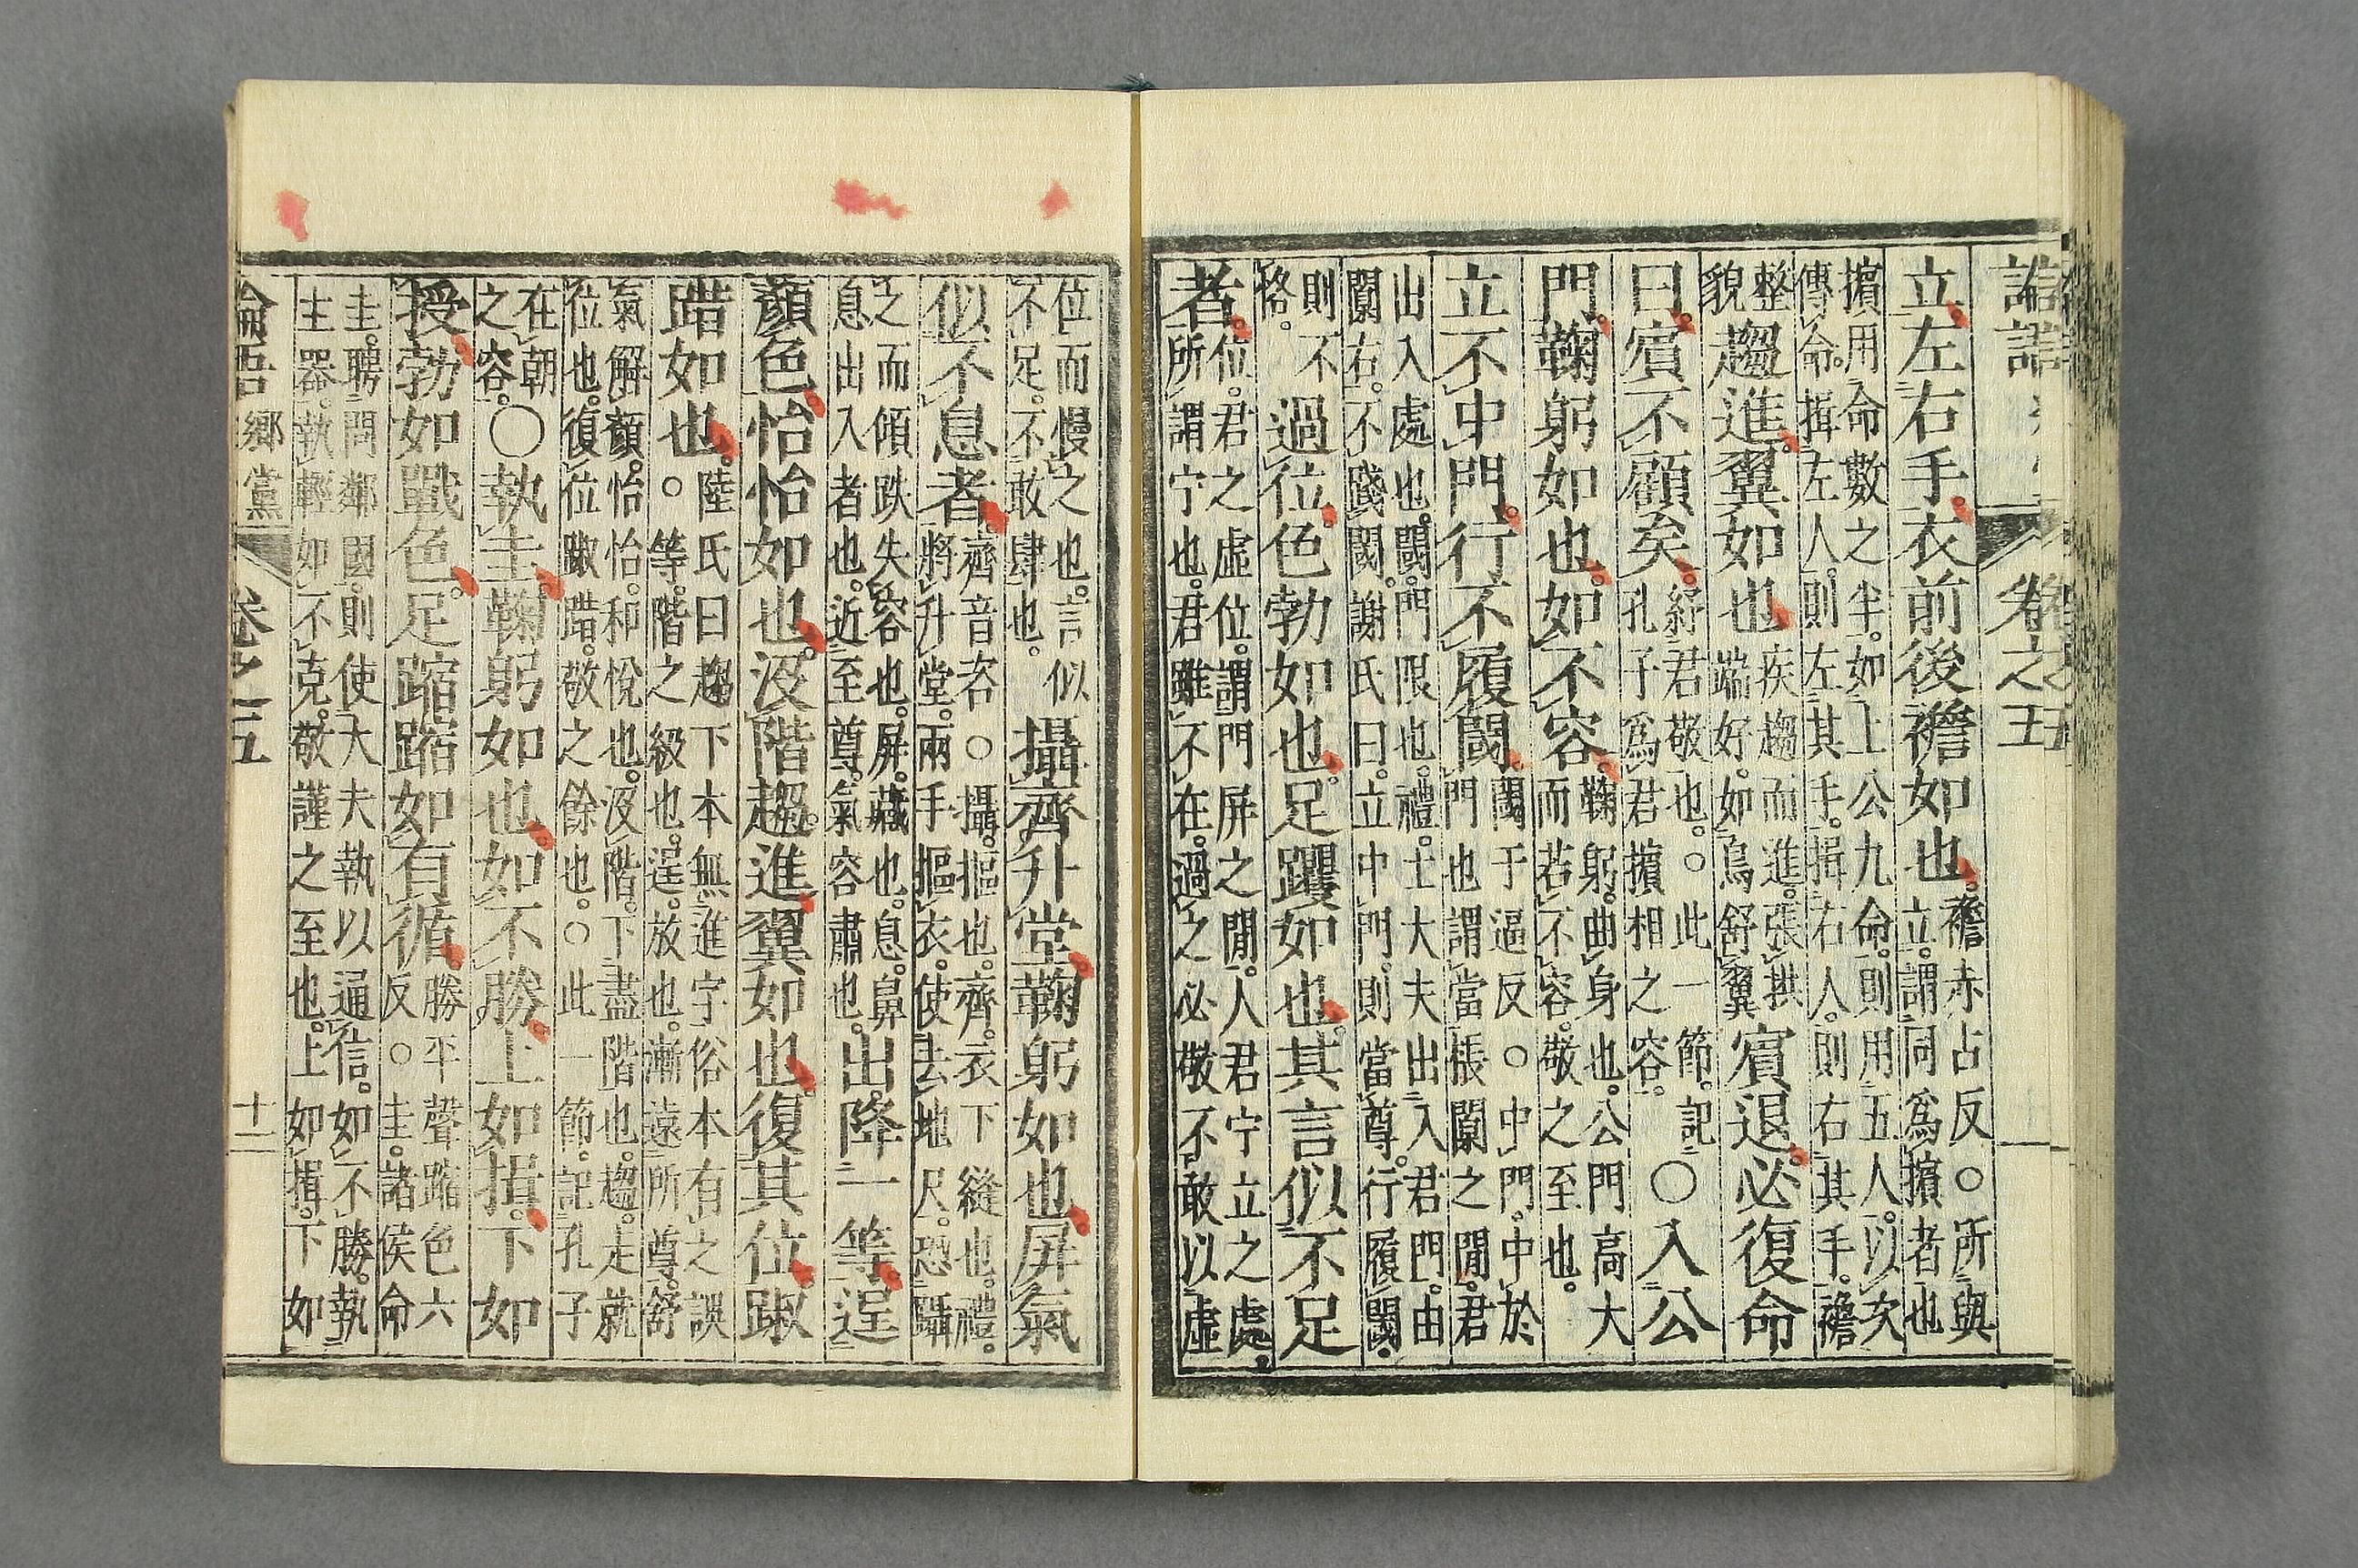 論語 卷之五
立。左右手。衣前後襜如也。襜赤占反。○所與立。謂同為擯者也
擯用命數之半。如上公九命。則用五人。以次傳命。揖左人。則左其手。揖右人。則右其手。襜
整貌趨進。翼如也。疾趨而進。張拱端好。如鳥舒翼賓退。必復命
曰。賓不顧矣。紓君敬也。○此一節。記孔子為君擯相之容。○入公
門。鞠躬如也。如不容。鞠躬。曲身也。公門高大而若不容。敬之至也。
立不中門。行不履閾。閾于逼反。○中門。中於門也。謂當棖闑之閒。君
出入處也。閾。門限也。禮。士大夫出入君門。由闑右。不踐閾。謝氏曰。立中門。則當尊。行履閾。
則不恪。過位。色勃如也。足躩如也。其言似不足
者。位。君之虛位。謂門屏之閒。人君宁立之處。所謂宁也。君雖不在。過之必敬。不敢以虛
位而慢之也。言似不足。不敢肆也。攝齊升堂。鞠躬如也。屏氣
似不息者。齊音咨。○攝。摳也。齊。衣下縫也。禮。將升堂。兩手摳衣。使去地尺。恐躡
之而傾跌失容也。屏。藏也。息。鼻息出入者也。近至尊。氣容肅也。出。降一等。逞
顏色。怡怡如也。沒階趨。進翼如也。復其位。踧
踖如也。陸氏曰。趨下本無進字。俗本有之誤○等。階之級也。逞。放也。漸遠所尊。舒
氣解顏。怡怡。和悅也。沒階。下盡階也。趨。走就位也。復位踧踖。敬之餘也。○此一節。記孔子
在朝之容。○執圭。鞠躬如也。如不勝。上如揖。下如
授。勃如戰色。足蹜蹜如有循。勝平聲蹜色六反○圭。諸侯命
圭。聘問鄰國。則使大夫執以通信。如不勝。執主器。執輕如不克。敬謹之至也。上如揖。下如
論語 鄉黨 卷之五 十二